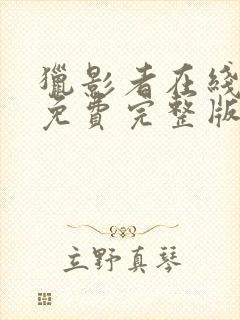 獵影者在綫
免費完整版
立野真琴